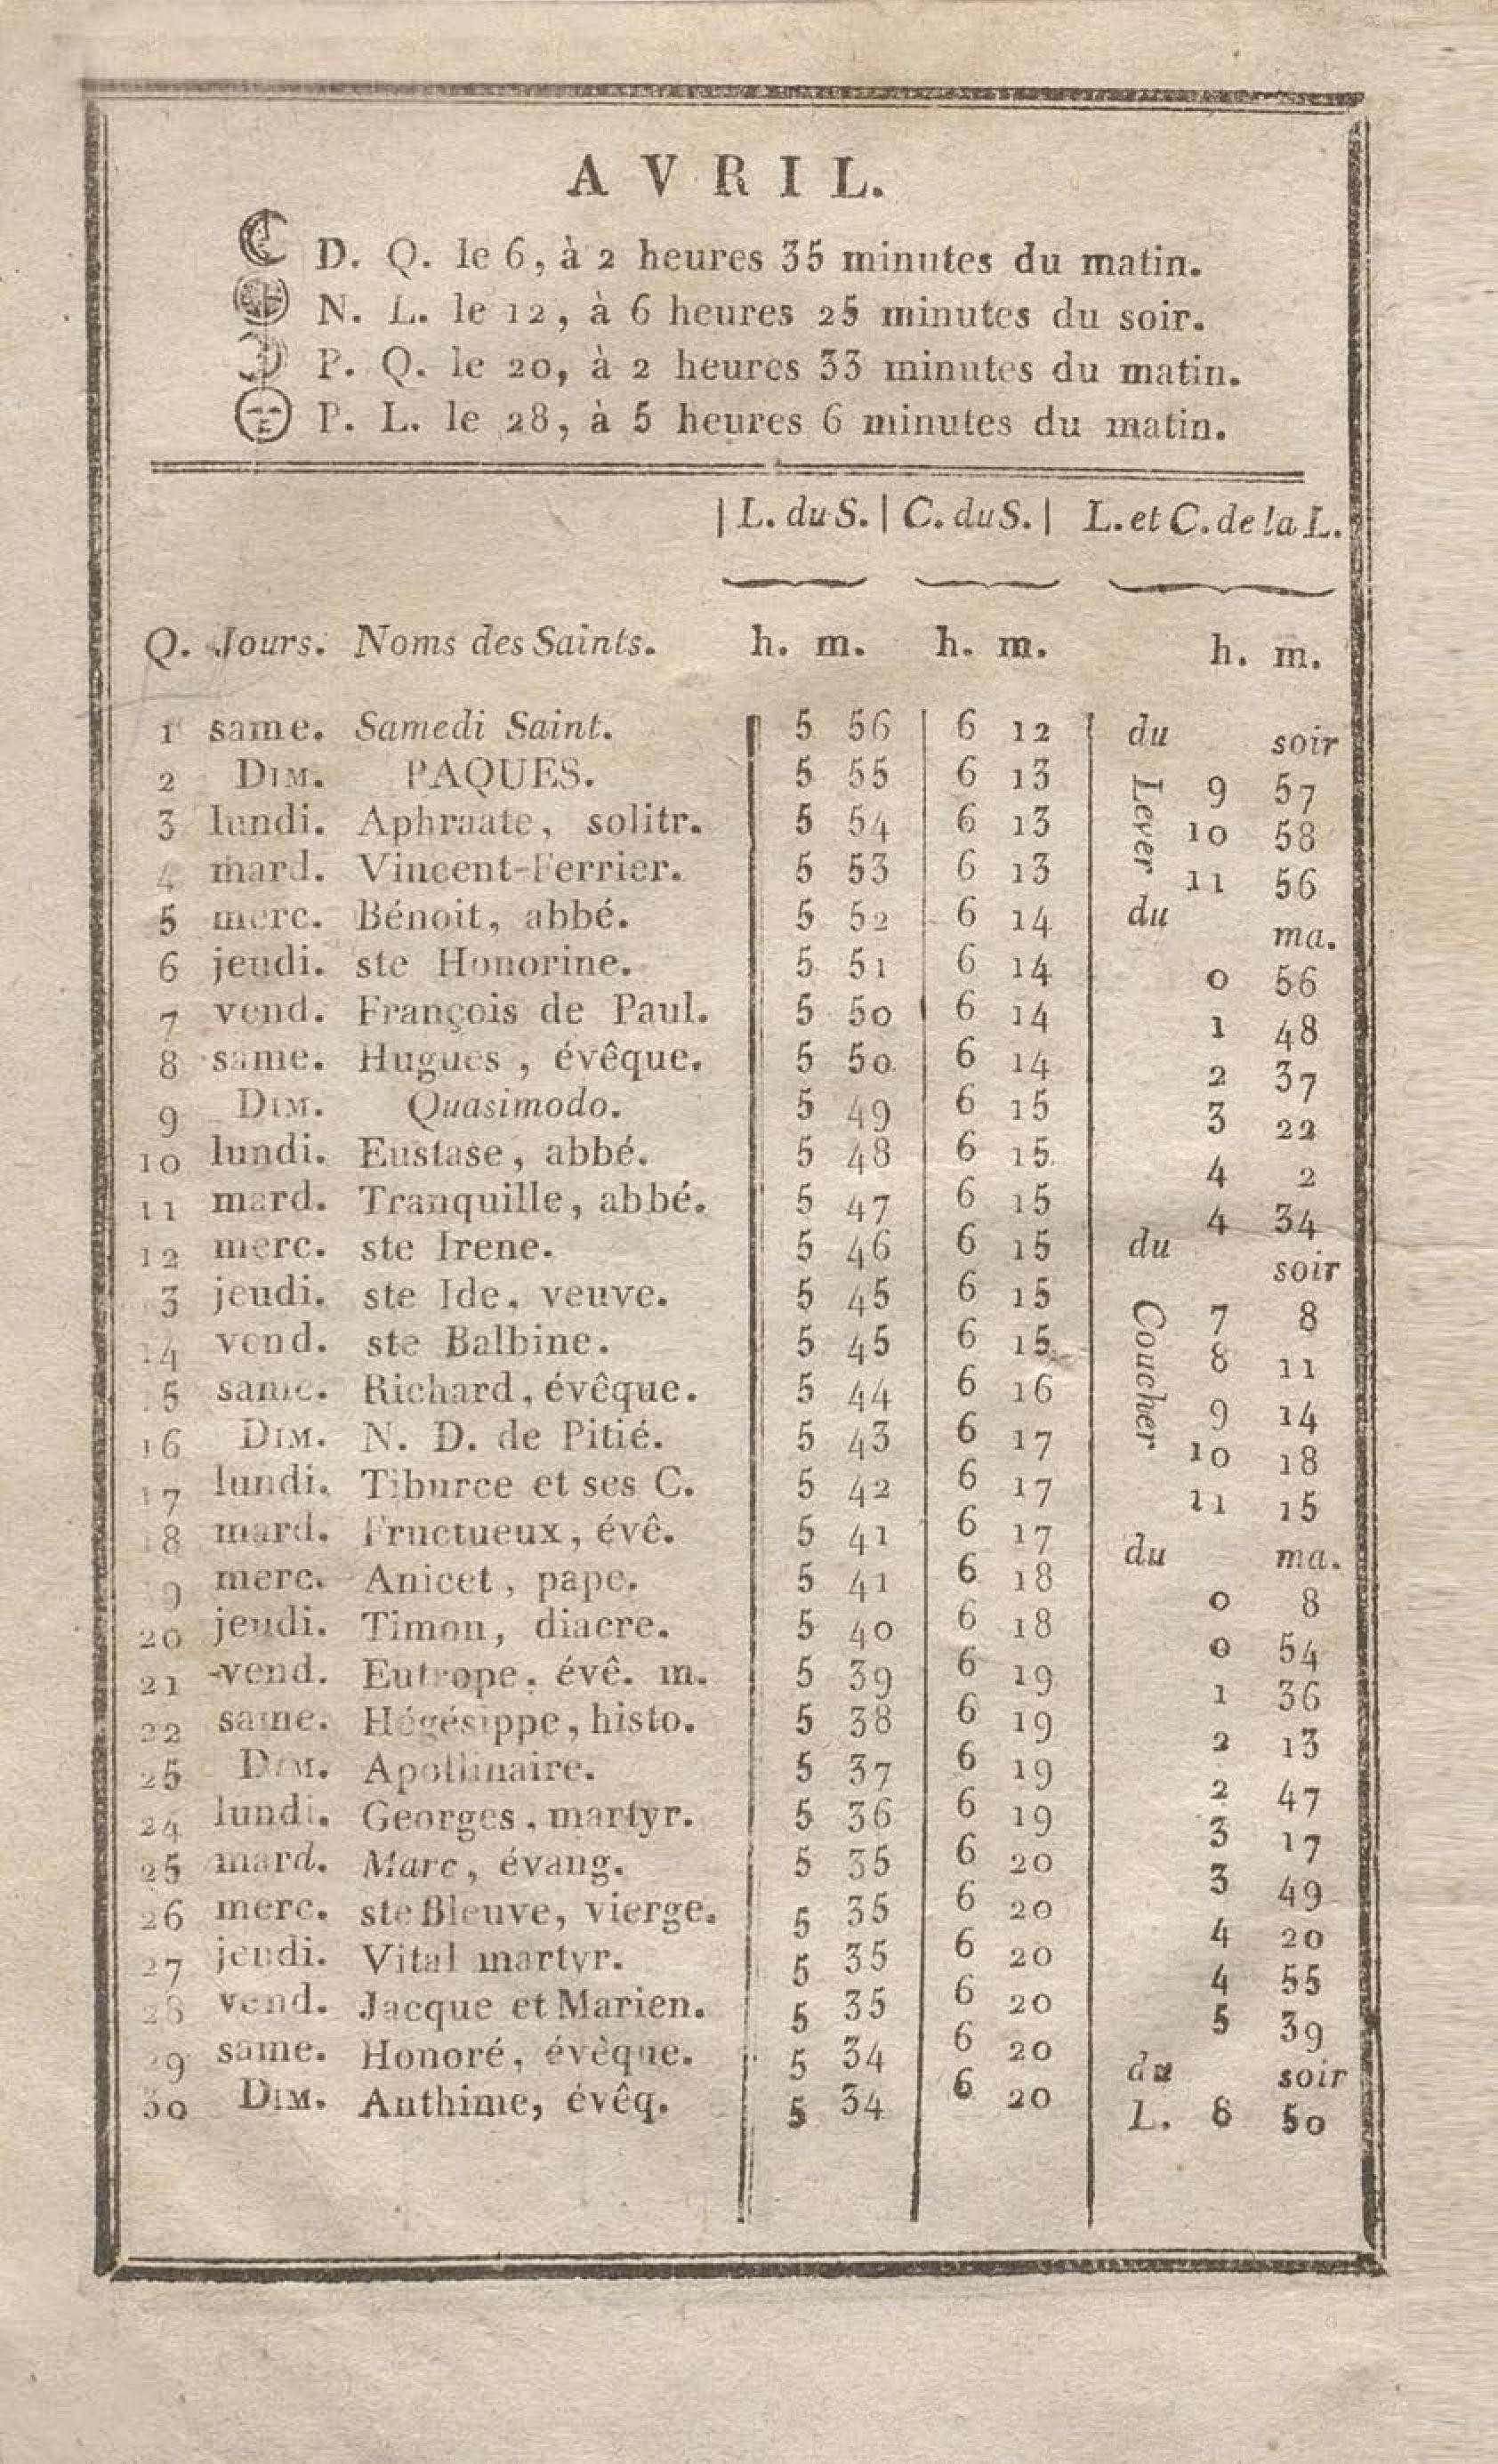 AVRIL.
D. Q. le 6, à 2 heures 35 minutes du matin.
N. L. le 12, à 6 heures 25 minutes du soir.
P. Q. le 20, à 2 heures 33 minutes du matin.
P. L. le 28, à 5 heures 6 minutes du matin.
| L. du S. | C. du S. | L. et C. de la L.
Q. Jours. Noms des Saints. h. m. h. m. h. m.
1 same. Samedi Saint. 5 56 6 12 du soir
2 DIM. PAQUES. 5 55 6 13 Lever 9 57
3 lundi. Aphraate, solitr. 5 54 6 13 10 58
4 mard. Vincent-Ferrier. 5 53 6 13 11 56
5 merc. Bénoit, abbé. 5 52 6 14 du ma.
6 jeudi. ste Honorine. 5 51 6 14 0 56
7 vend. François de Paul. 5 50 6 14 1 48
8 same. Hugues, évêque. 5 50 6 14 2 37
9 DIM. Quasimodo. 5 49 6 15 3 22
10 lundi. Eustase, abbé. 5 48 6 15 4 2
11 mard. Tranquille, abbé. 5 47 6 15 4 34
12 merc. ste Irene. 5 46 6 15 du soir
3 jeudi. ste Ide, veuve. 5 45 6 15 Coucher 7 8
14 vend. ste Balbine. 5 45 6 15 8 11
5 same. Richard, évêque. 5 44 6 16 9 14
16 DIM. N. D. de Pitié. 5 43 6 17 10 18
17 lundi. Tiburce et ses C. 5 42 6 17 11 15
18 mard. Fructueux, évê. 5 41 6 17 du ma.
9 merc. Anicet, pape. 5 41 6 18 0 8
20 jeudi. Timon, diacre. 5 40 6 18 0 54
21 vend. Eutrope, évê. m. 5 39 6 19 1 36
22 same. Hégésippe, histo. 5 38 6 19 2 13
25 DIM. Apollinaire. 5 37 6 19 2 47
24 lundi. Georges, martyr. 5 36 6 19 3 17
25 mard. Marc, évang. 5 35 6 20 3 49
26 merc. ste Bleuve, vierge. 5 35 6 20 4 20
27 jeudi. Vital martyr. 5 35 6 20 4 55
28 vend. Jacque et Marien. 5 35 6 20 5 39
29 same. Honoré, évèque. 5 34 6 20 du soir
30 DIM. Anthime, évêq. 5 34 6 20 L. 8 50